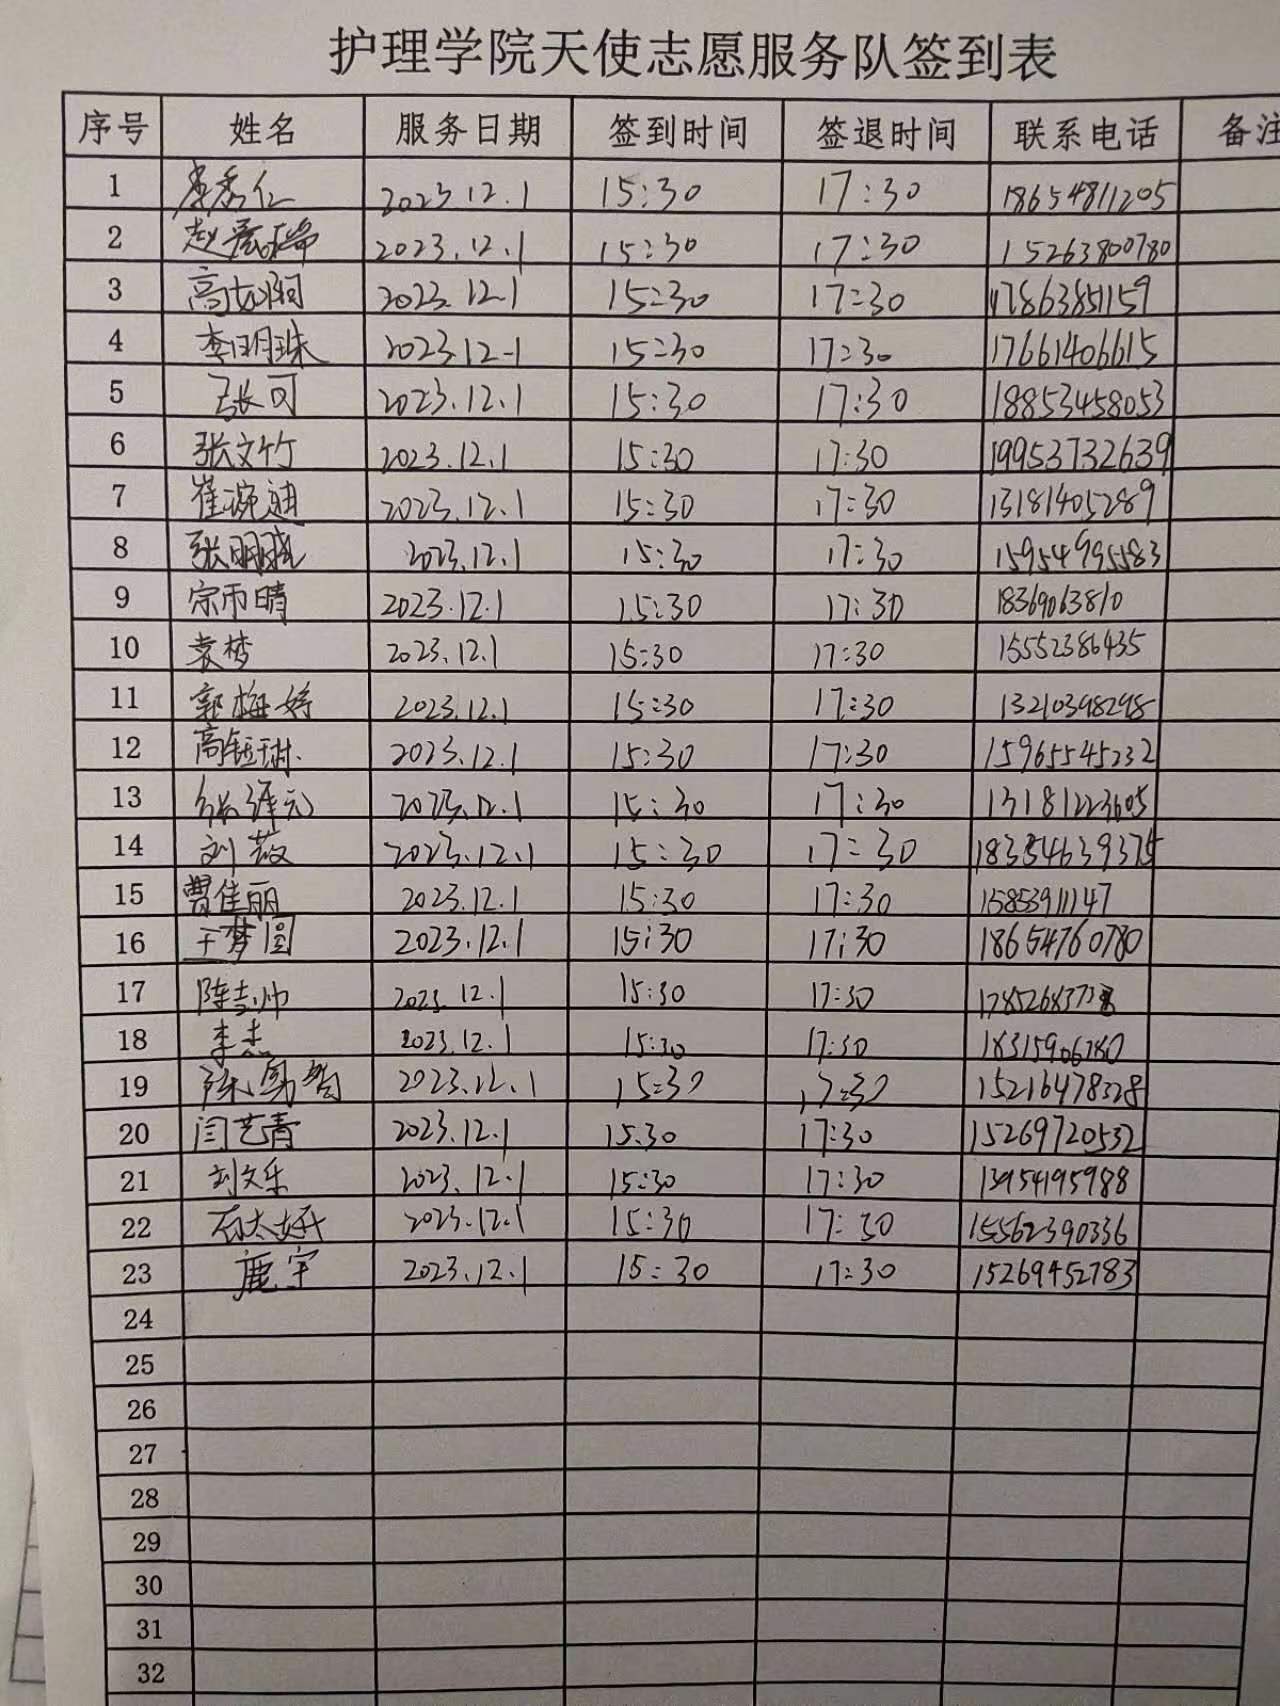 护理学院天使志愿服务队签到表
序号 姓名 服务日期 签到时间 签退时间 联系电话 备注
1 李秀仁 2023.12.1 15:30 17:30 18654811205
2 赵 2023.12.1 15:30 17:30 15263800780
3 高 2023.12.1 15:30 17:30 17863851159
4 李明珠 2023.12.1 15:30 17:30 17661406615
5 张可 2023.12.1 15:30 17:30 18853458053
6 张文竹 2023.12.1 15:30 17:30 19953732639
7 崔琬迪 2023.12.1 15:30 17:30 13181405289
8 张明 2023.12.1 15:30 17:30 15954995583
9 宗雨晴 2023.12.1 15:30 17:30 18369063810
10 袁梦 2023.12.1 15:30 17:30 15552386435
11 郭梅婷 2023.12.1 15:30 17:30 13210398298
12 高钰琳 2023.12.1 15:30 17:30 15965545232
13 2023.12.1 15:30 17:30 13181223605
14 刘薇 2023.12.1 15:30 17:30 18354639375
15 曹佳丽 2023.12.1 15:30 17:30 15853911147
16 王梦圆 2023.12.1 15:30 17:30 18654760780
17 陈 2023.12.1 15:30 17:30
18 李杰 2023.12.1 15:30 17:30 18315906780
19 陈 2023.12.1 15:30 17:30 15216478328
20 闫艺青 2023.12.1 15:30 17:30 15269720532
21 刘文乐 2023.12.1 15:30 17:30 13954195988
22 石 2023.12.1 15:30 17:30 15562390336
23 鹿宇 2023.12.1 15:30 17:30 15269452783
24
25
26
27
28
29
30
31
32